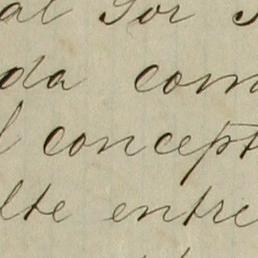 al Sor
da com
l concept
lte entre